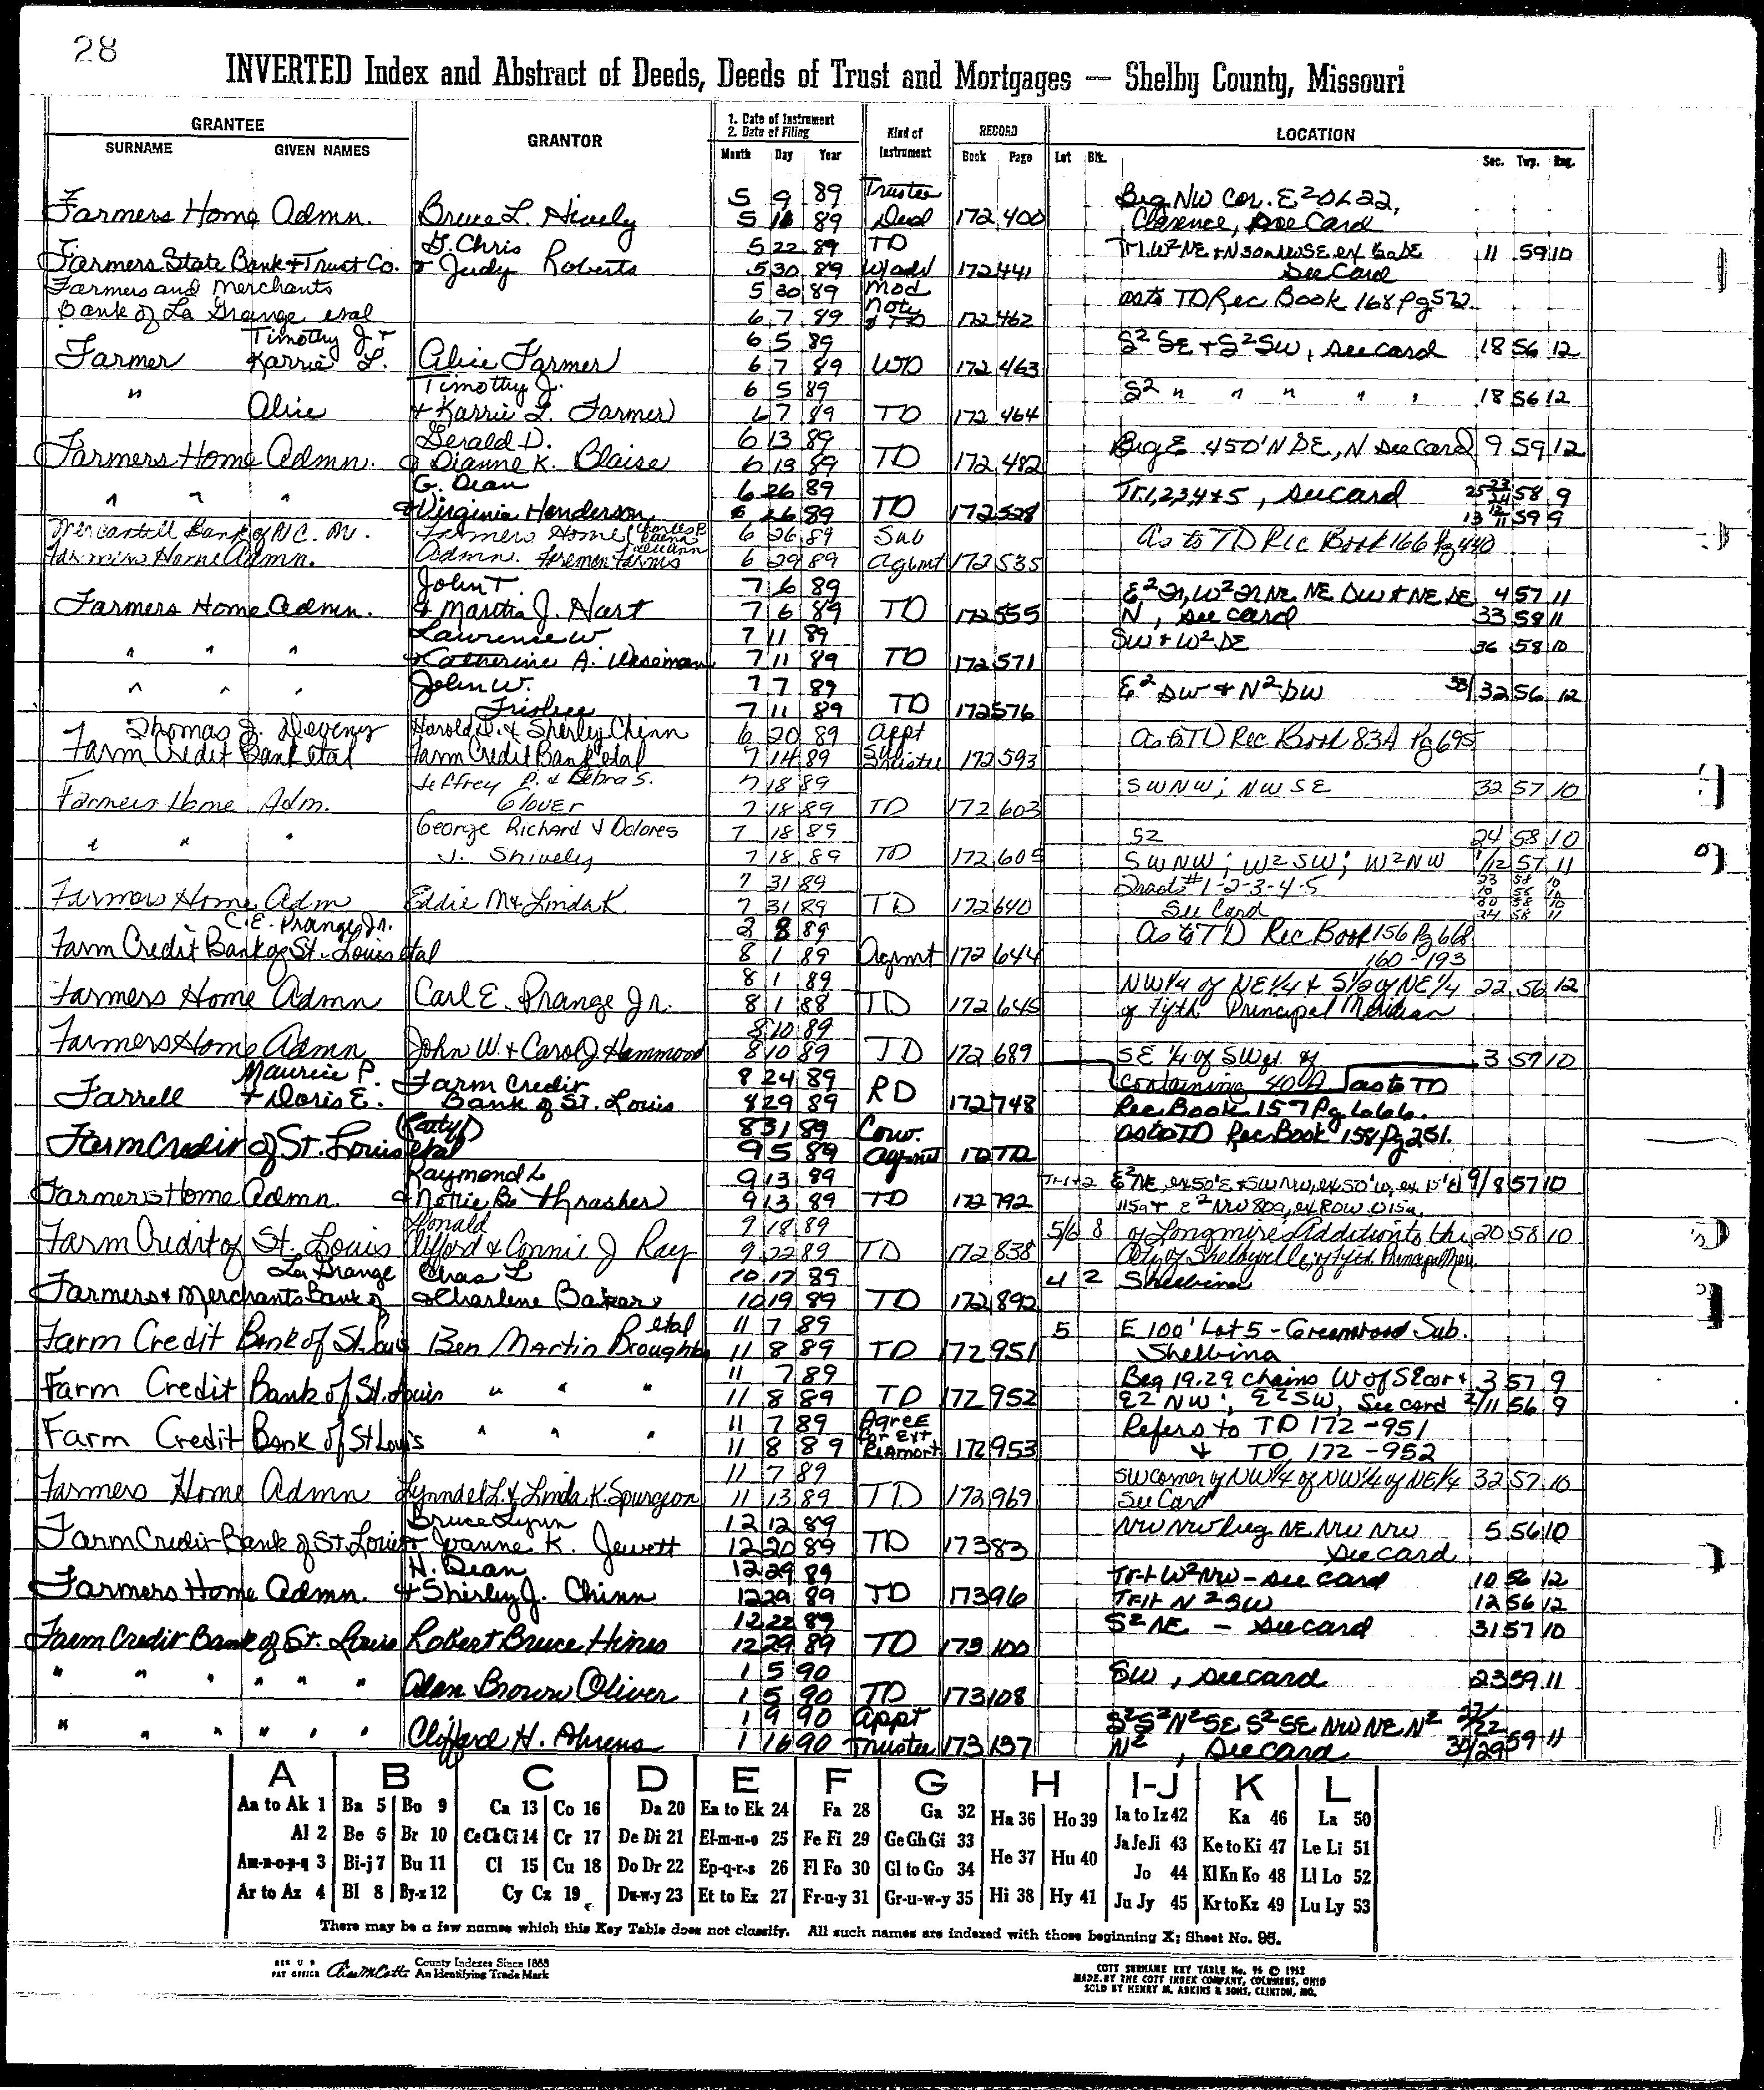 28
INVERTED Index and Abstract of Deeds, Deeds of Trust and Mortgages — Shelby County, Missouri
GRANTEE GRANTOR 1. Date of Instrument 2. Date of Filing Kind of Instrument RECORD LOCATION
SURNAME GIVEN NAMES Month Day Year Book Page Lot Blk. Sec. Twp. Rng.
5 9 89 Trustee Beg NW Cor. E2 OL 22,
Farmers Home Admn. Bruce L. Hively 5 89 Deed 172 400 Clarence, See Card
G. Chris 5 22 89 TD 11 59 10
Farmers State Bank & Trust Co. & Judy Roberts 5 30 89 172 441 See Card
Farmers and Merchants 5 30 89 Mod as to TD Rec Book 168 Pg 572
Bank of La Grange etal 6 7 89 Not & TD 172 462
Timothy J & 6 5 89 S2 SE & S2 SW, see card 18 56 12
Farmer Karrie L. Alice Farmer 6 7 89 WD 172 463
" Timothy J. 6 5 89 S2 " " " " " 18 56 12
Alice & Karrie L. Farmer 6 7 89 TD 172 464
Gerald D. 6 13 89 Beg E 450' N SE, N see card 9 59 12
Farmers Home Admn. & Dianne K. Blaise 6 13 89 TD 172 482
G. Dean 6 26 89 Tr. 1,2,3,4 & 5, see card 25 23 24 58 9
" " " & Virginia Henderson 6 26 89 TD 172 528 13 12 11 59 9
Mercantell Bank of N.C. M. Farmers Home Charles P. 6 26 89 Sub As to TD Rec Book 166 Pg 440
Farmers Home Admn. Admn. Foreman Farms 6 29 89 Agmt 172 535
John T. 7 6 89 4 57 11
Farmers Home Admn. & Martha J. Hart 7 6 89 TD 172 555 N, see card 33 58 11
Lawrence W 7 11 89 SW & W2 SE 36 58 10
" " " & Katherine A. Weseman 7 11 89 TD 172 571
" " " John W. 7 7 89 E2 SW & N2 SW 33/32 56 12
Frisbee 7 11 89 TD 172 576
Thomas J. Deveney Harold D. & Shirley Chinn 6 20 89 Appt As to TD Rec Book 83A Pg 695
Farm Credit Bank etal Farm Credit Bank etal 7 14 89 172 593
Jeffrey P. & Debra S. 7 18 89 SWNW; NWSE 32 57 10
Farmers Home Adm. Glover 7 18 89 TD 172 603
George Richard & Dolores 7 18 89 S2 24 58 10
" " " J. Shively 7 18 89 TD 172 605 SWNW; W2SW; W2NW 1/12 57 11
7 31 89 Tracts #1-2-3-4-5
Farmers Home Adm Eddie M & Linda K 7 31 89 TD 172 640 See Card
C.E. Prange Jr. 2 8 89 As to TD Rec Book 156 Pg 668
Farm Credit Bank of St. Louis etal 8 1 89 Agmt 172 644 160-193
8 1 89 NW1/4 of NE1/4 & S1/2 of NE1/4 22 56 12
Farmers Home Admn Carl E. Prange Jr. 8 1 88 TD 172 645 of Fifth Principal Meridian
8 10 89
Farmers Home Admn John W. & Carol J Hammond 8 10 89 TD 172 689 SE 1/4 of SW 3 57 10
Maurice P. Farm Credit 8 24 89 RD Containing 40 A as to TD
Farrell & Doris E. Bank of St. Louis 8 29 89 172 748 Rec Book 157 Pg 666.
8 31 89 as to TD Rec Book 158 Pg 251.
Farm Credit of St. Louis etal 9 5 89 Agmt
Raymond L 9 13 89 Tr 1 & 2 9/8 57 10
Farmers Home Admn. & Nottie B. Thrasher 9 13 89 TD 172 792
Donald 9 18 89 5/6 8 of Longmire's Addition to the 20 58 10
Farm Credit of St. Louis Clifford & Connie J Ray 9 22 89 TD 172 838 City of Shelbyville of Fifth Principal Meri.
La Grange Chas L 10 17 89 4 2 Shelbina
Farmers & Merchants Bank of & Charlene Baker 10 19 89 TD 172 892
etal 11 7 89 5 E 100' Lot 5 - Greenwood Sub.
Farm Credit Bank of St. Louis Ben Martin Broughton 11 8 89 TD 172 951 Shelbina
11 7 89 Beg 19.29 chains W of SEcor & 3 57 9
Farm Credit Bank of St. Louis " " " 11 8 89 TD 172 952 E2 NW; E2SW, See card 2/11 56 9
11 7 89 Agree For Ext Refers to TD 172-951
Farm Credit Bank of St Louis " " " 11 8 89 Reamort 172 953 & TD 172-952
11 7 89 SW corner of NW1/4 of NW1/4 of NE1/4 32 57 10
Farmers Home Admn Lynndel L. & Linda K. Spurgeon 11 13 89 TD 172 969 See Card
Bruce Lynn 12 12 89 NW NW beg NE NW NW 5 56 10
Farm Credit Bank of St. Louis & Joanne K. Jewett 12 20 89 TD 173 83 see card
H. Dean 12 29 89 Tr-1 W2NW - see card 10 56 12
Farmers Home Admn. & Shirley J. Chinn 12 29 89 TD 173 96 N2SW 12 56 12
12 22 89 S2 NE - see card 31 57 10
Farm Credit Bank of St. Louis Robert Bruce Hines 12 29 89 TD 173 100
1 5 90 SW, see card 23 59 11
" " " " " " Alan Brown Oliver 1 5 90 TD 173 108
1 9 90 Appt S2S2N2SE S2SE NW NE N2 27/22
" " " " " " Clifford H. Ahrens 1 16 90 Trustee 173 137 N2, see card 30/29 59 11
A B C D E F G H I-J K L
Aa to Ak 1 Ba 5 Bo 9 Ca 13 Co 16 Da 20 Ea to Ek 24 Fa 28 Ga 32 Ha 36 Ho 39 Ia to Iz 42 Ka 46 La 50
Al 2 Be 6 Br 10 Ce Ch Ci 14 Cr 17 De Di 21 El-m-n-o 25 Fe Fi 29 Ge Gh Gi 33 He 37 Hu 40 Ja Je Ji 43 Ke to Ki 47 Le Li 51
Am-n-o-p-q 3 Bi-j 7 Bu 11 Cl 15 Cu 18 Do Dr 22 Ep-q-r-s 26 Fl Fo 30 Gl to Go 34 Jo 44 Kl Kn Ko 48 Ll Lo 52
Ar to Az 4 Bl 8 By-z 12 Cy Cz 19 Du-w-y 23 Et to Ez 27 Fr-u-y 31 Gr-u-w-y 35 Hi 38 Hy 41 Ju Jy 45 Kr to Kz 49 Lu Ly 53
There may be a few names which this Key Table does not classify. All such names are indexed with those beginning X; Sheet No. 95.
REG U S PAT OFFICE County Indexes Since 1888 An Identifying Trade Mark
COTT SURNAME KEY TABLE No. 96 © 1962
MADE BY THE COTT INDEX COMPANY, COLUMBUS, OHIO
SOLD BY HENRY M. ADKINS & SONS, CLINTON, MO.